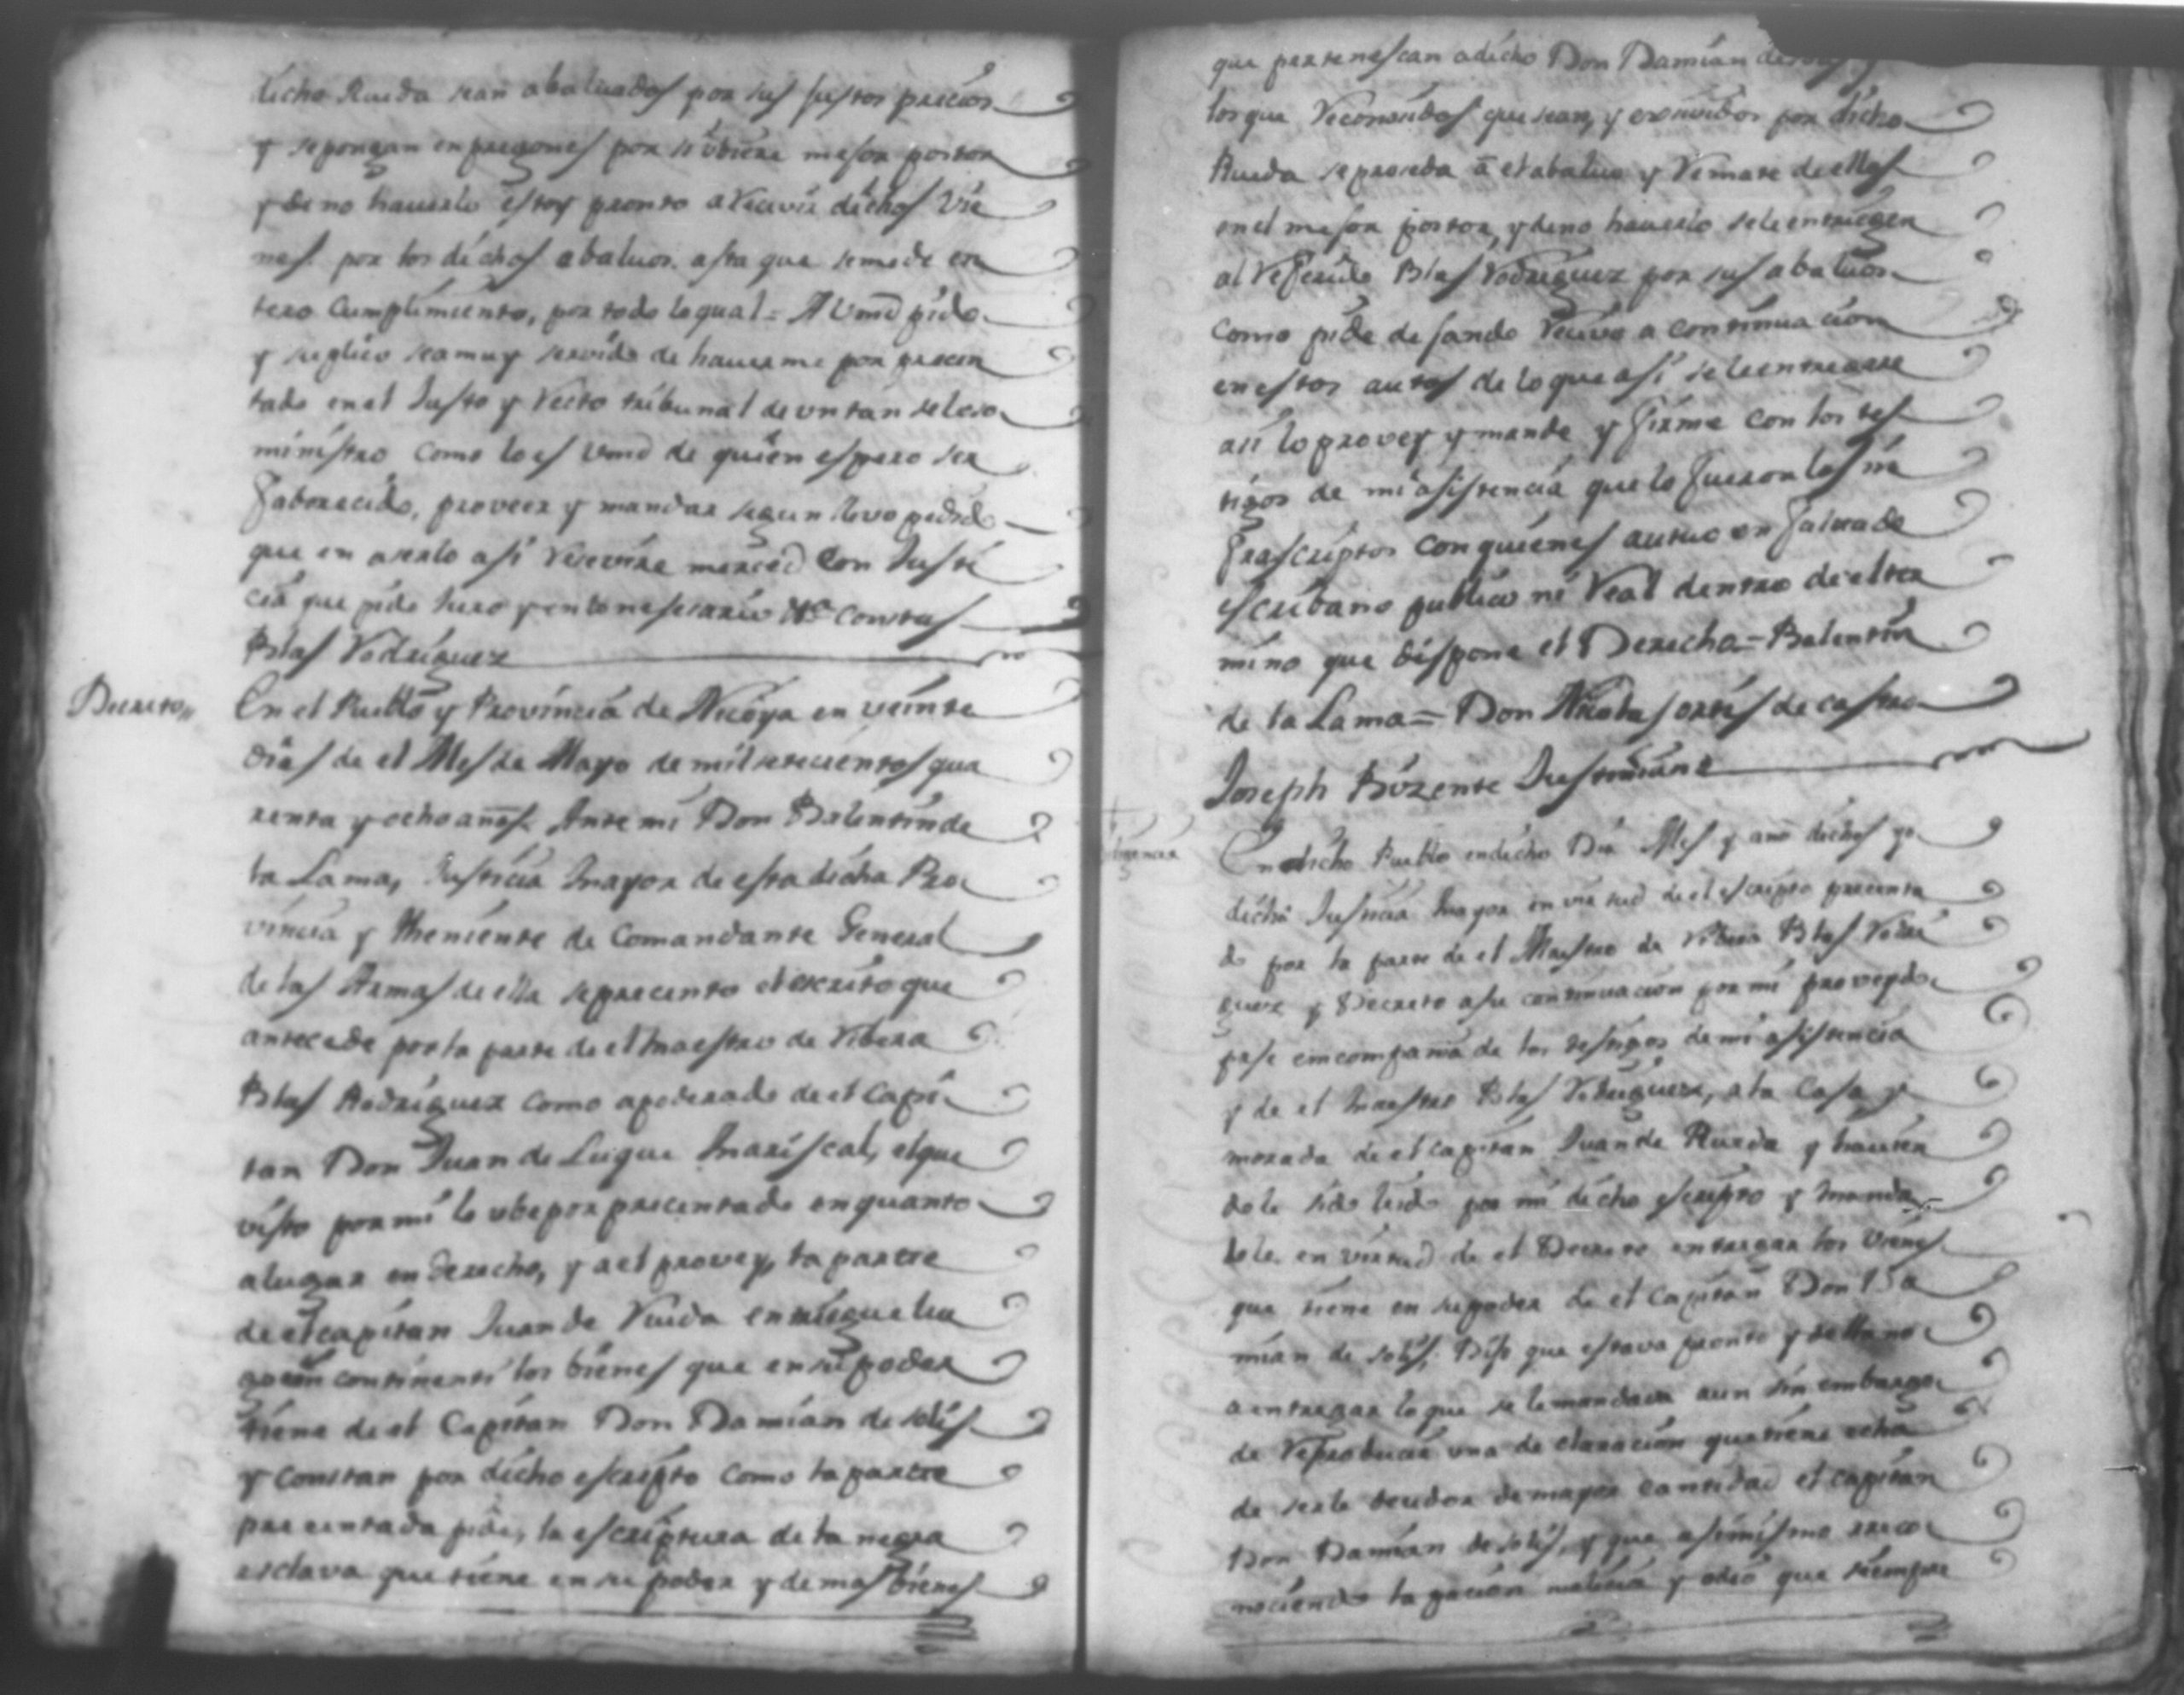 dicho Rueda sean abaluados por sus justos precios
y sepongan en pregones por si ubiere mejor postor
y de no hauerlo estoy pronto a Reciuir dichos Vie
nes por los dichos abaluos asta que semede en
tero Cumplimiento, por todo lo qual = A Vmd pido
y suplico sea muy servido de hauerme por presen
tado en el Justo y Recto tribunal de un tan seloso
ministro como lo es Vmd de quien espero ser
faborecido, proveer y mandar segun llevo pedido
que en aserlo asi Recivire merced con Justi
cia que pido Juro y en lo nesesario Va Costas
Blas Rodriguez
Decreto
En el Pueblo y Provincia de Nicoya en veinte
dias de el Mes de Mayo de mil setecientos qua
renta y ocho años Ante mi Don Balentin de
la Lama, Justicia mayor de esta dicha Pro
vincia y Theniente de Comandante General
de las Armas de ella sepresento el escrito que
antecede por la parte de el maestro de Ribera
Blas Rodriguez como apoderado de el Capi
tan Don Juan de Luque Mariscal, el que
visto por mi lo ube por presentado en quanto
a lugar en derecho, y a el provey, la parte
de el capitan Juan de Rueda entregue lue
go en continenti los bienes que en su poder
tiene de el Capitan Don Damian de solis
y constan por dicho escripto como la parte
presentada pide, la escriptura de la negra
esclava que tiene en su poder y demas bienes
que pertenescan a dicho Don Damian de
los que Reconosidos que sean, y exsividos por dicho
Rueda se proseda a el abaluo y Remate de ellos
en el mejor postor, y de no hauerlo sele entreguen
al Referido Blas Rodriguez por sus abaluos
como pide dejando Recivo a continuacion
en estos autos de lo que asi sele entregare
asi lo provey y mande y firme con los tes
tigos de mi asistencia que lo fueron los in
frascriptos con quienes autuo en falta de
escribano publico ni Real dentro de el ter
mino que dispone el Derecho = Balentin
de la Lama = Don Nicolas ortis de castro
Joseph Bizente Justiniano
En dicho Pueblo en dicho Dia Mes y año dichos yo
dicho Justicia mayor en virtud de el escripto presenta
do por la parte de el Maestro de Ribera Blas Rodri
guez y Decreto a su continuacion por mi proveydo
pase en compania de los testigos de mi asistencia
y de el maestro Blas Rodriguez, a la Casa y
morada de el capitan Juan de Rueda y havien
dole sido leido por mi dicho escripto y manda
dole en virtud de el Decreto entregar los Vienes
que tiene en su poder de el Capitan Don Da
mian de solis, Dijo que estava pronto y se llano
a entregar lo que se le mandava aun sin embargo
de Reproducir una declaracion que tiene echa
de serle deudor de mayor cantidad el capitan
Don Damian de solis, y que asimismo reco
nociendo la pacion malicia y odio que siempre